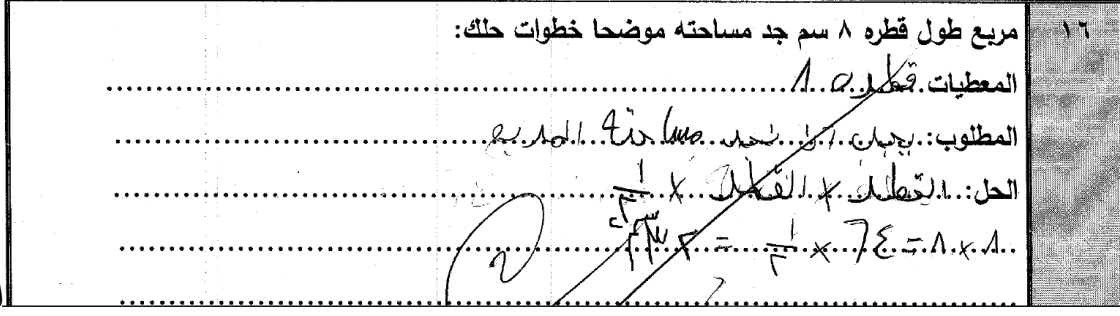 ١٦ مربع طول قطره ٨ سم جد مساحته موضحا خطوات حلك:
المعطيات قطره ٨
المطلوب: يجب ان نجد مساحة المربع
الحل: القطر × القطر × ١/٢
٨ × ٨ = ٦٤ × ١/٢ = ٣٢